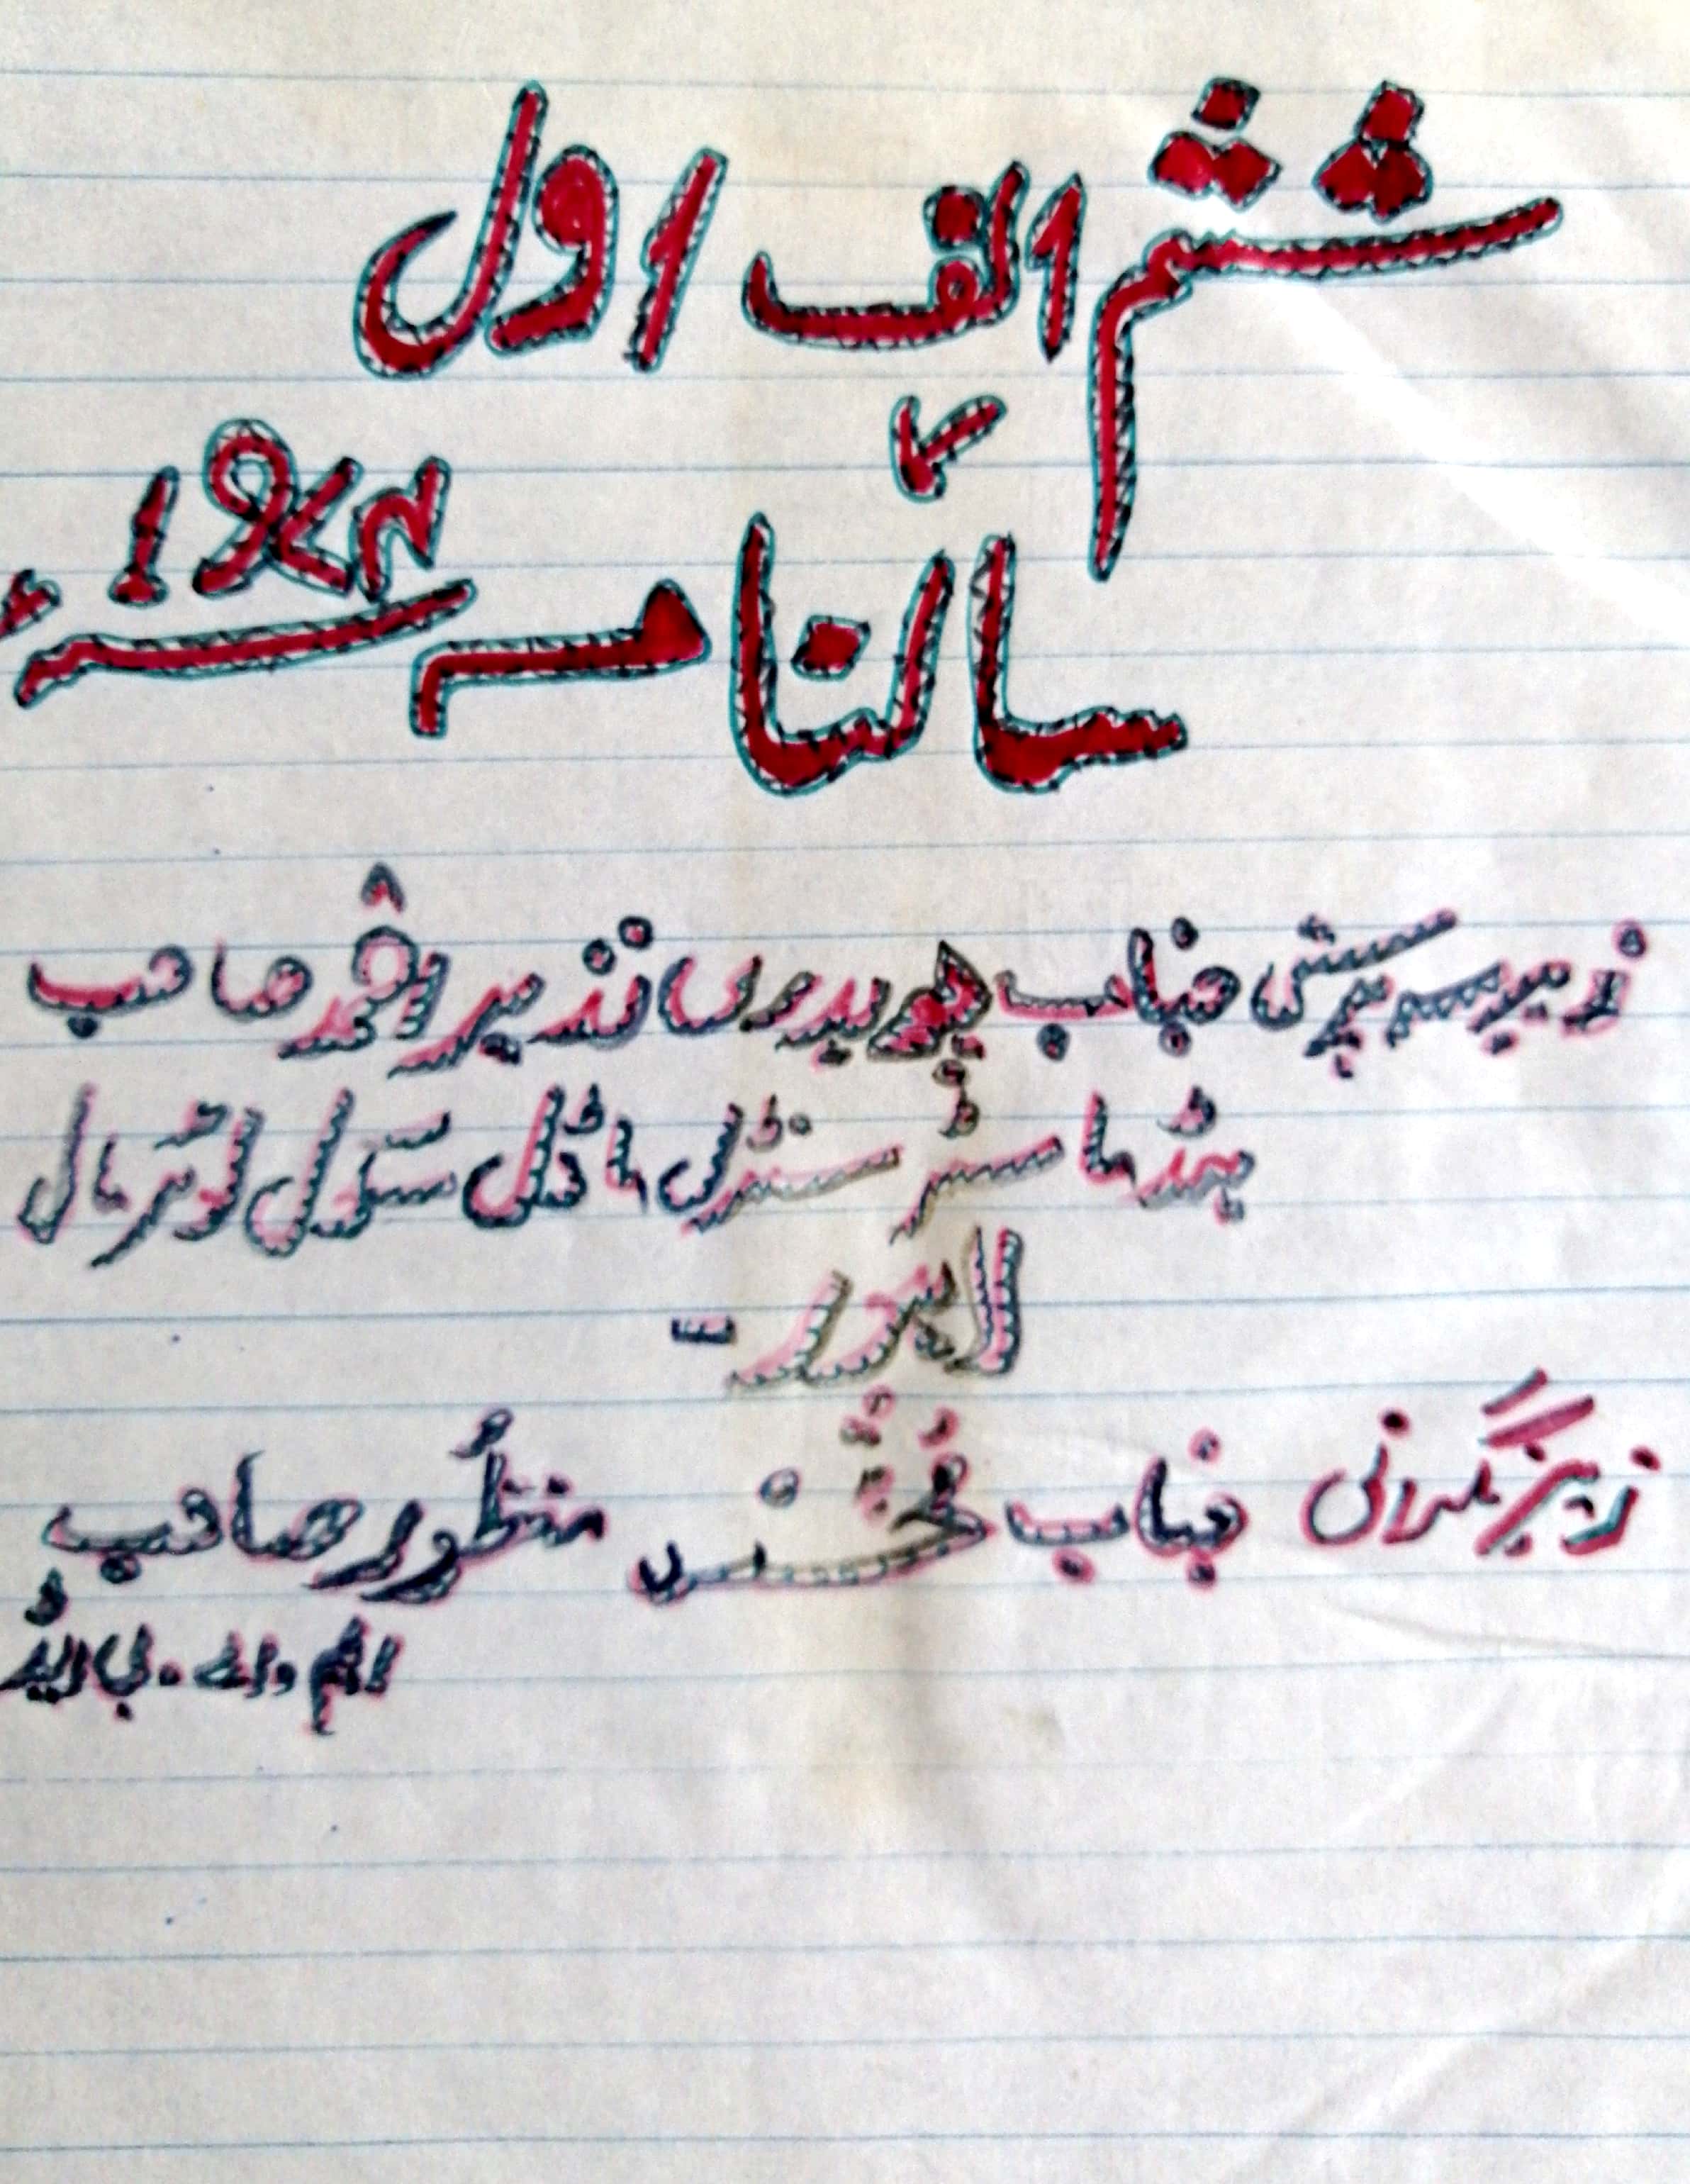 ششم الف اول
سالنامہ ۱۹۷۴ء
زیر سرپرستی جناب چوہدری نذیر احمد صاحب
ہیڈ ماسٹر سنٹرل ماڈل سکول لوئر مال
لاہور -
زیر نگرانی جناب منظور صاحب
ایم.اے.بی ایڈ